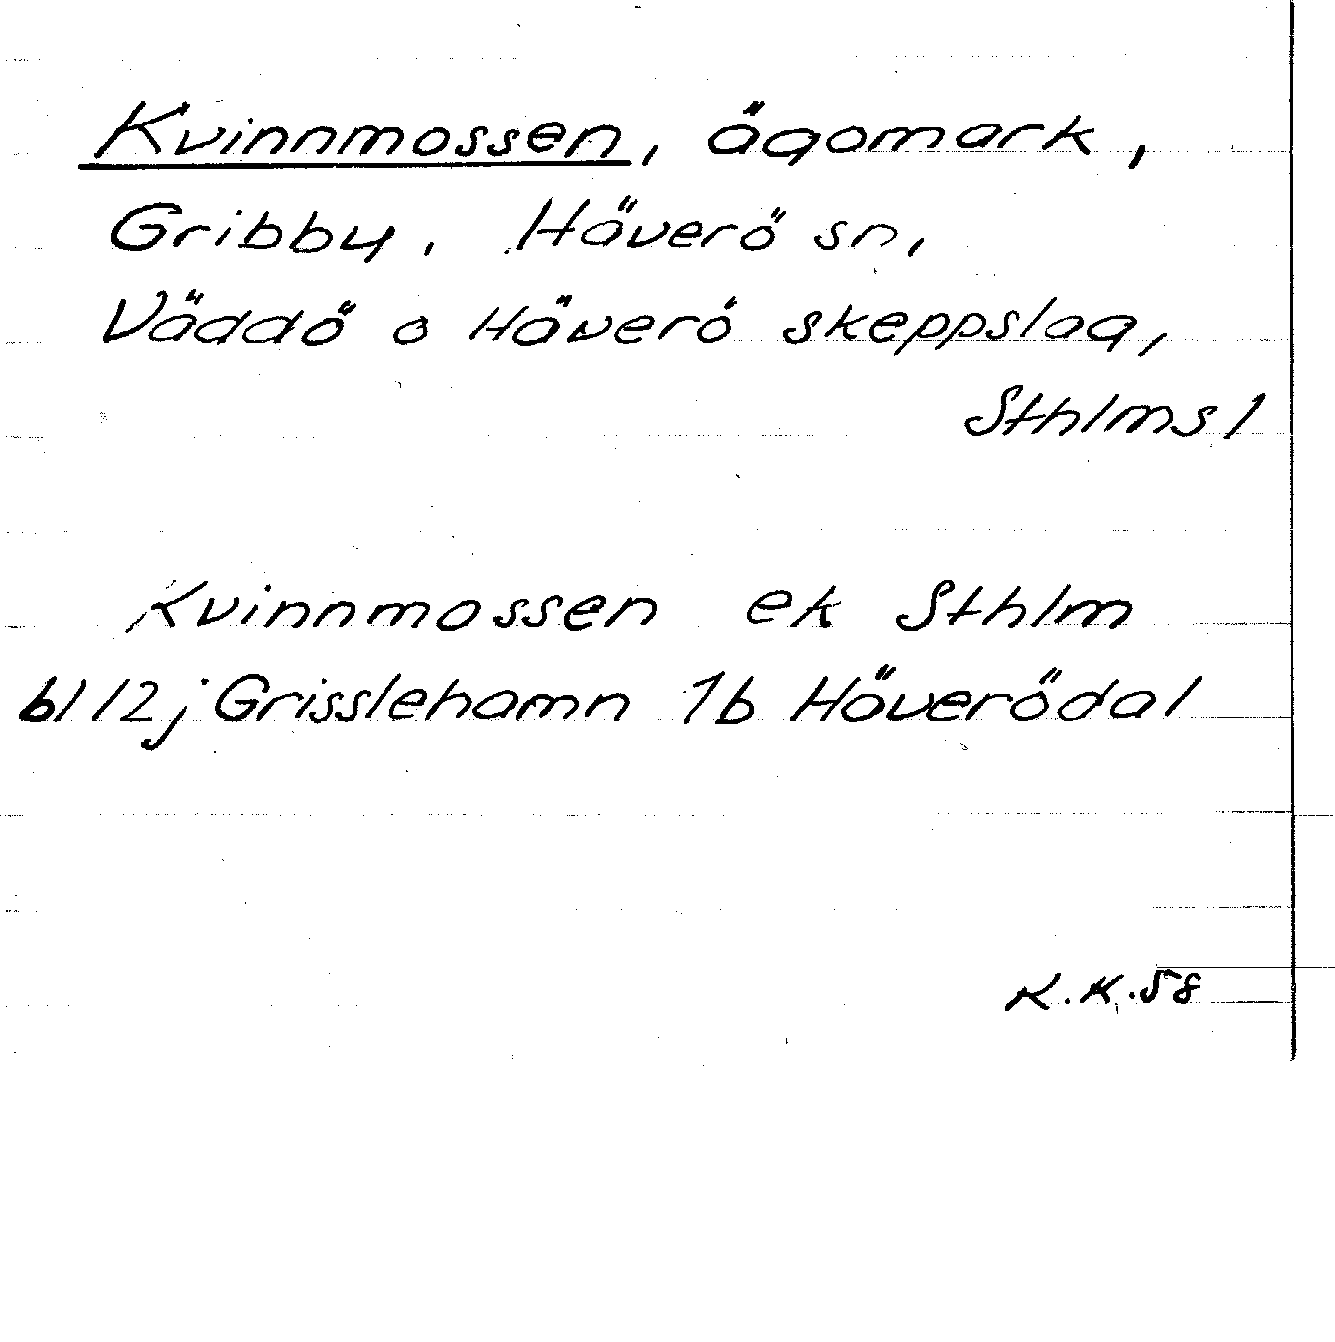 Kvinnmossen, ägomark,
Gribby, Häverö sn,
Väddö o Häverö skeppslag,
Sthlms l
Kvinnmossen ek Sthlm
bl 12j Grisslehamn 1b Häverödal
K.K.58